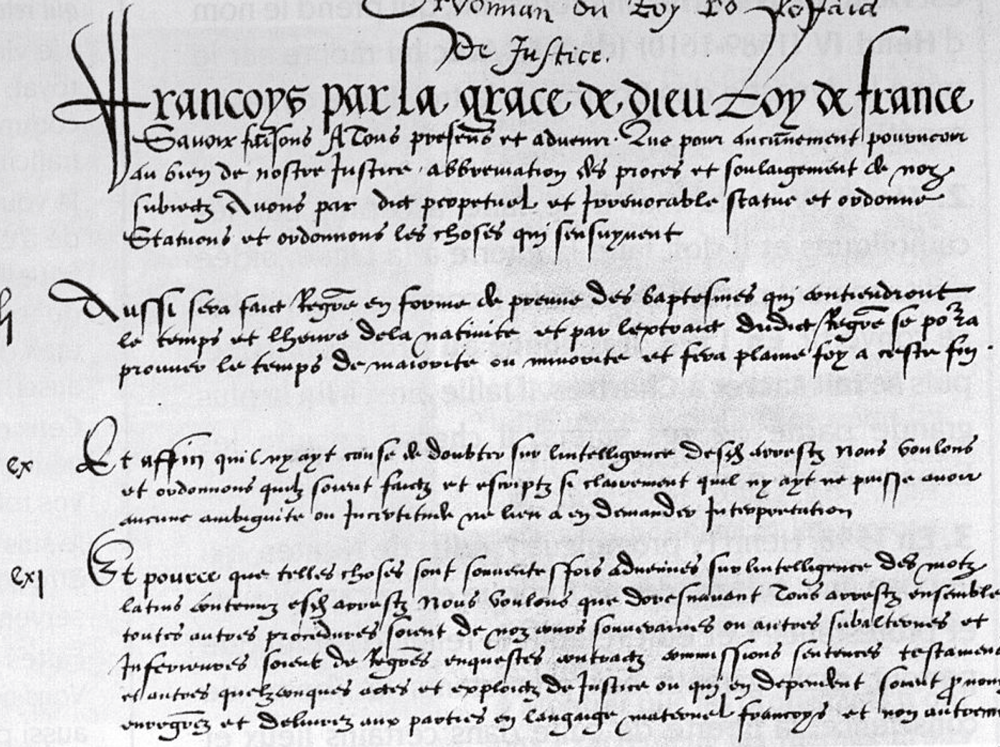 du Roy le faict
de Justice.
Francoys par la grace de dieu Roy de france
Savoir faisons A Tous presens et advenir Que pour aucunement pourveoir
au bien de nostre Justice abbreviation des proces et soulaigement de noz
subiectz Avons par dict perpetuel et Irrevocable statue et ordonne
Statuons et ordonnons les choses qui sensuyvent
Aussi sera faict Regre en forme de preuve des baptesmes qui contiendront
le temps et lheure de la nativite et par lextraict dudict Regre se pora
prouver le temps de maiorite ou minorite et fera plaine foy a ceste fin
cx Et affin quil ny ayt cause de doubter sur lintelligence desd arrestz Nous voulons
et ordonnons quilz soient faictz et escriptz si clairement quil ny ayt ne puisse avoir
aucune ambiguite ou Incertitude ne lieu a en demander Interpretation
cxj Et pource que telles choses sont souventesfois advenues sur lintelligence des motz
latins contenuz esd arrestz Nous voulons que doresnavant Tous arrestz ensemble
toutes autres procedures soient de noz cours souveraines ou autres subalternes et
Inferieures soient de Regres enquestes contractz commissions sentences testamens
et autres quelzconques actes et exploictz de Justice ou qui en dependent soient pronon
enregrez et delivrez aux parties en langaige maternel francoys et non autrement